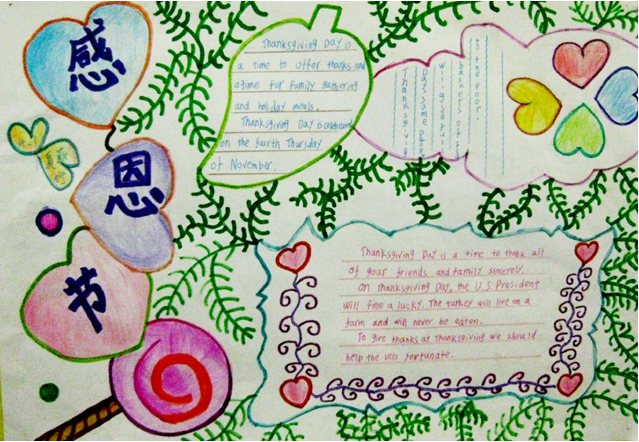 感
恩
节
Thanksgiving Day is
a time to offer thanks and
a time for family gathering
and holiday meals.
Thanksgiving Day is celebrated
on the fourth Thursday
of November.
Day, some
will give full
baskets of f
to the poor.
Thanksgiving Day is a time to thank all
of your friends and family sincerely.
On Thanksgiving Day, the U.S. President
will free a lucky. The turkey will live on a
farm and will never be eaten.
To give thanks at Thanksgiving we should
help the less fortunate.